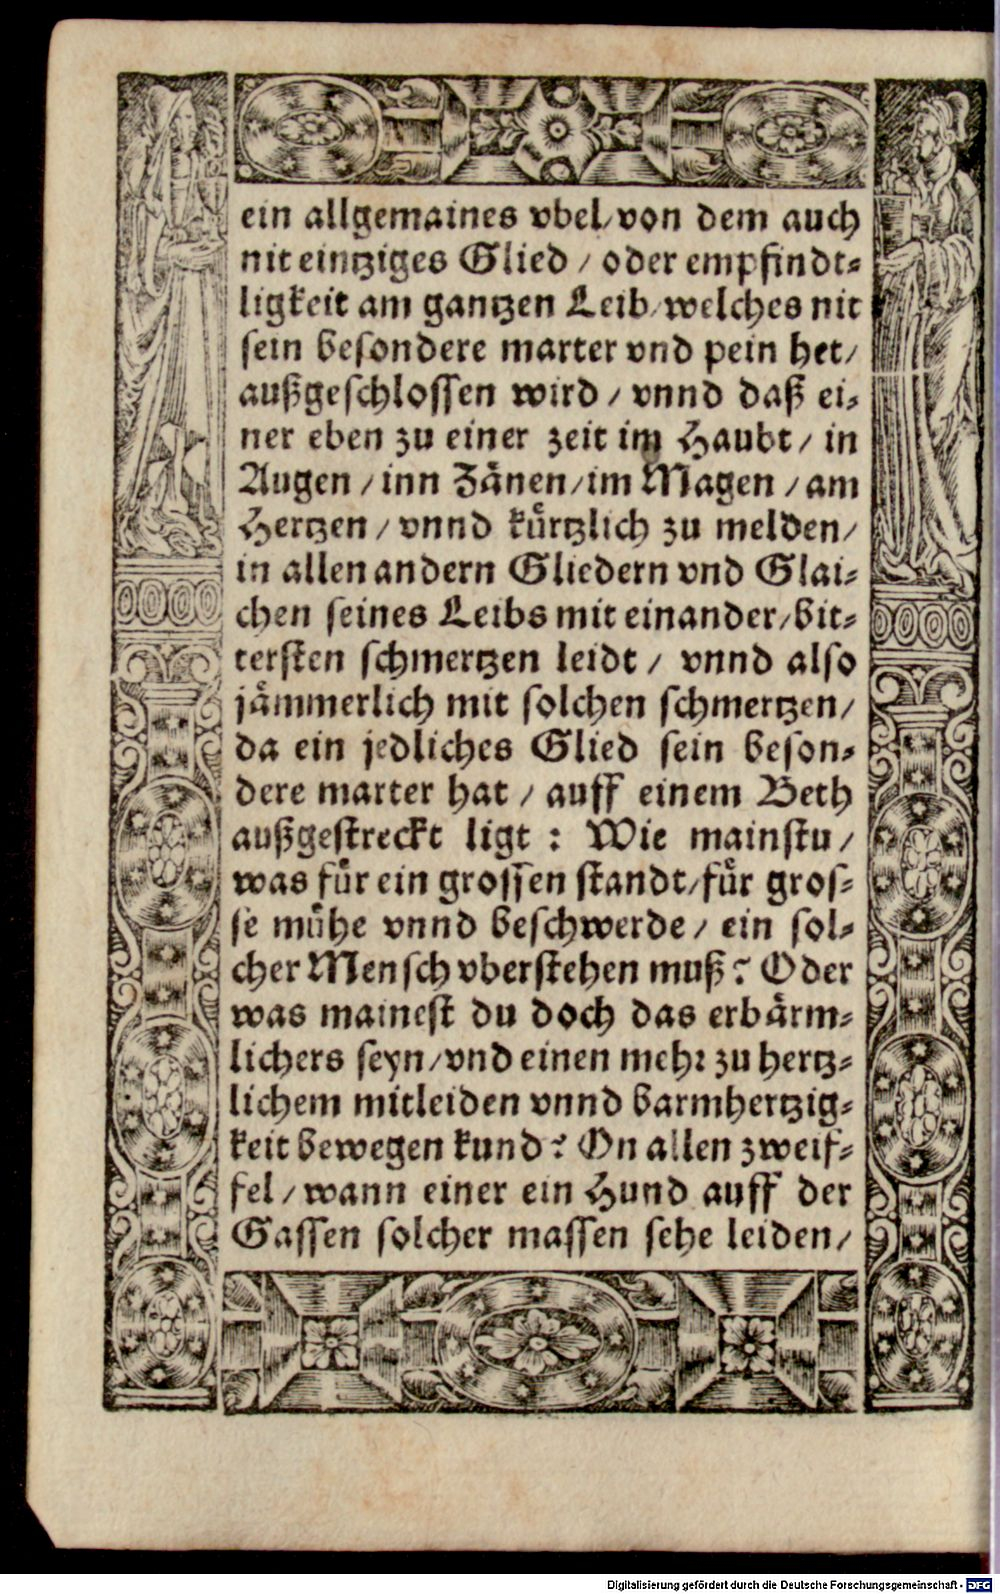 ein allgemaines vbel/von dem auch
nit eintziges Glied / oder empfindt⸗
ligkeit am gantzen Leib/welches nit
sein besondere marter vnd pein het/
außgeschlossen wird / vnnd daß ei⸗
ner eben zu einer zeit im Haubt / in
Augen / inn Zänen/im Magen / am
Hertzen / vnnd kürtzlich zu melden/
in allen andern Gliedern vnd Glai⸗
chen seines Leibs mit einander/bit⸗
tersten schmertzen leidt / vnnd also
jämmerlich mit solchen schmertzen/
da ein jedliches Glied sein beson⸗
dere marter hat / auff einem Beth
außgestreckt ligt : Wie mainstu /
was für ein grossen standt/für gros⸗
se mühe vnnd beschwerde / ein sol⸗
cher Mensch vberstehen muß? Oder
was mainest du doch das erbärm⸗
lichers seyn/vnd einen mehr zu hertz⸗
lichem mitleiden vnnd barmhertzig⸗
keit bewegen kund? On allen zweif⸗
fel / wann einer ein Hund auff der
Gassen solcher massen sehe leiden/
Digitalisierung gefördert durch die Deutsche Forschungsgemeinschaft - DFG